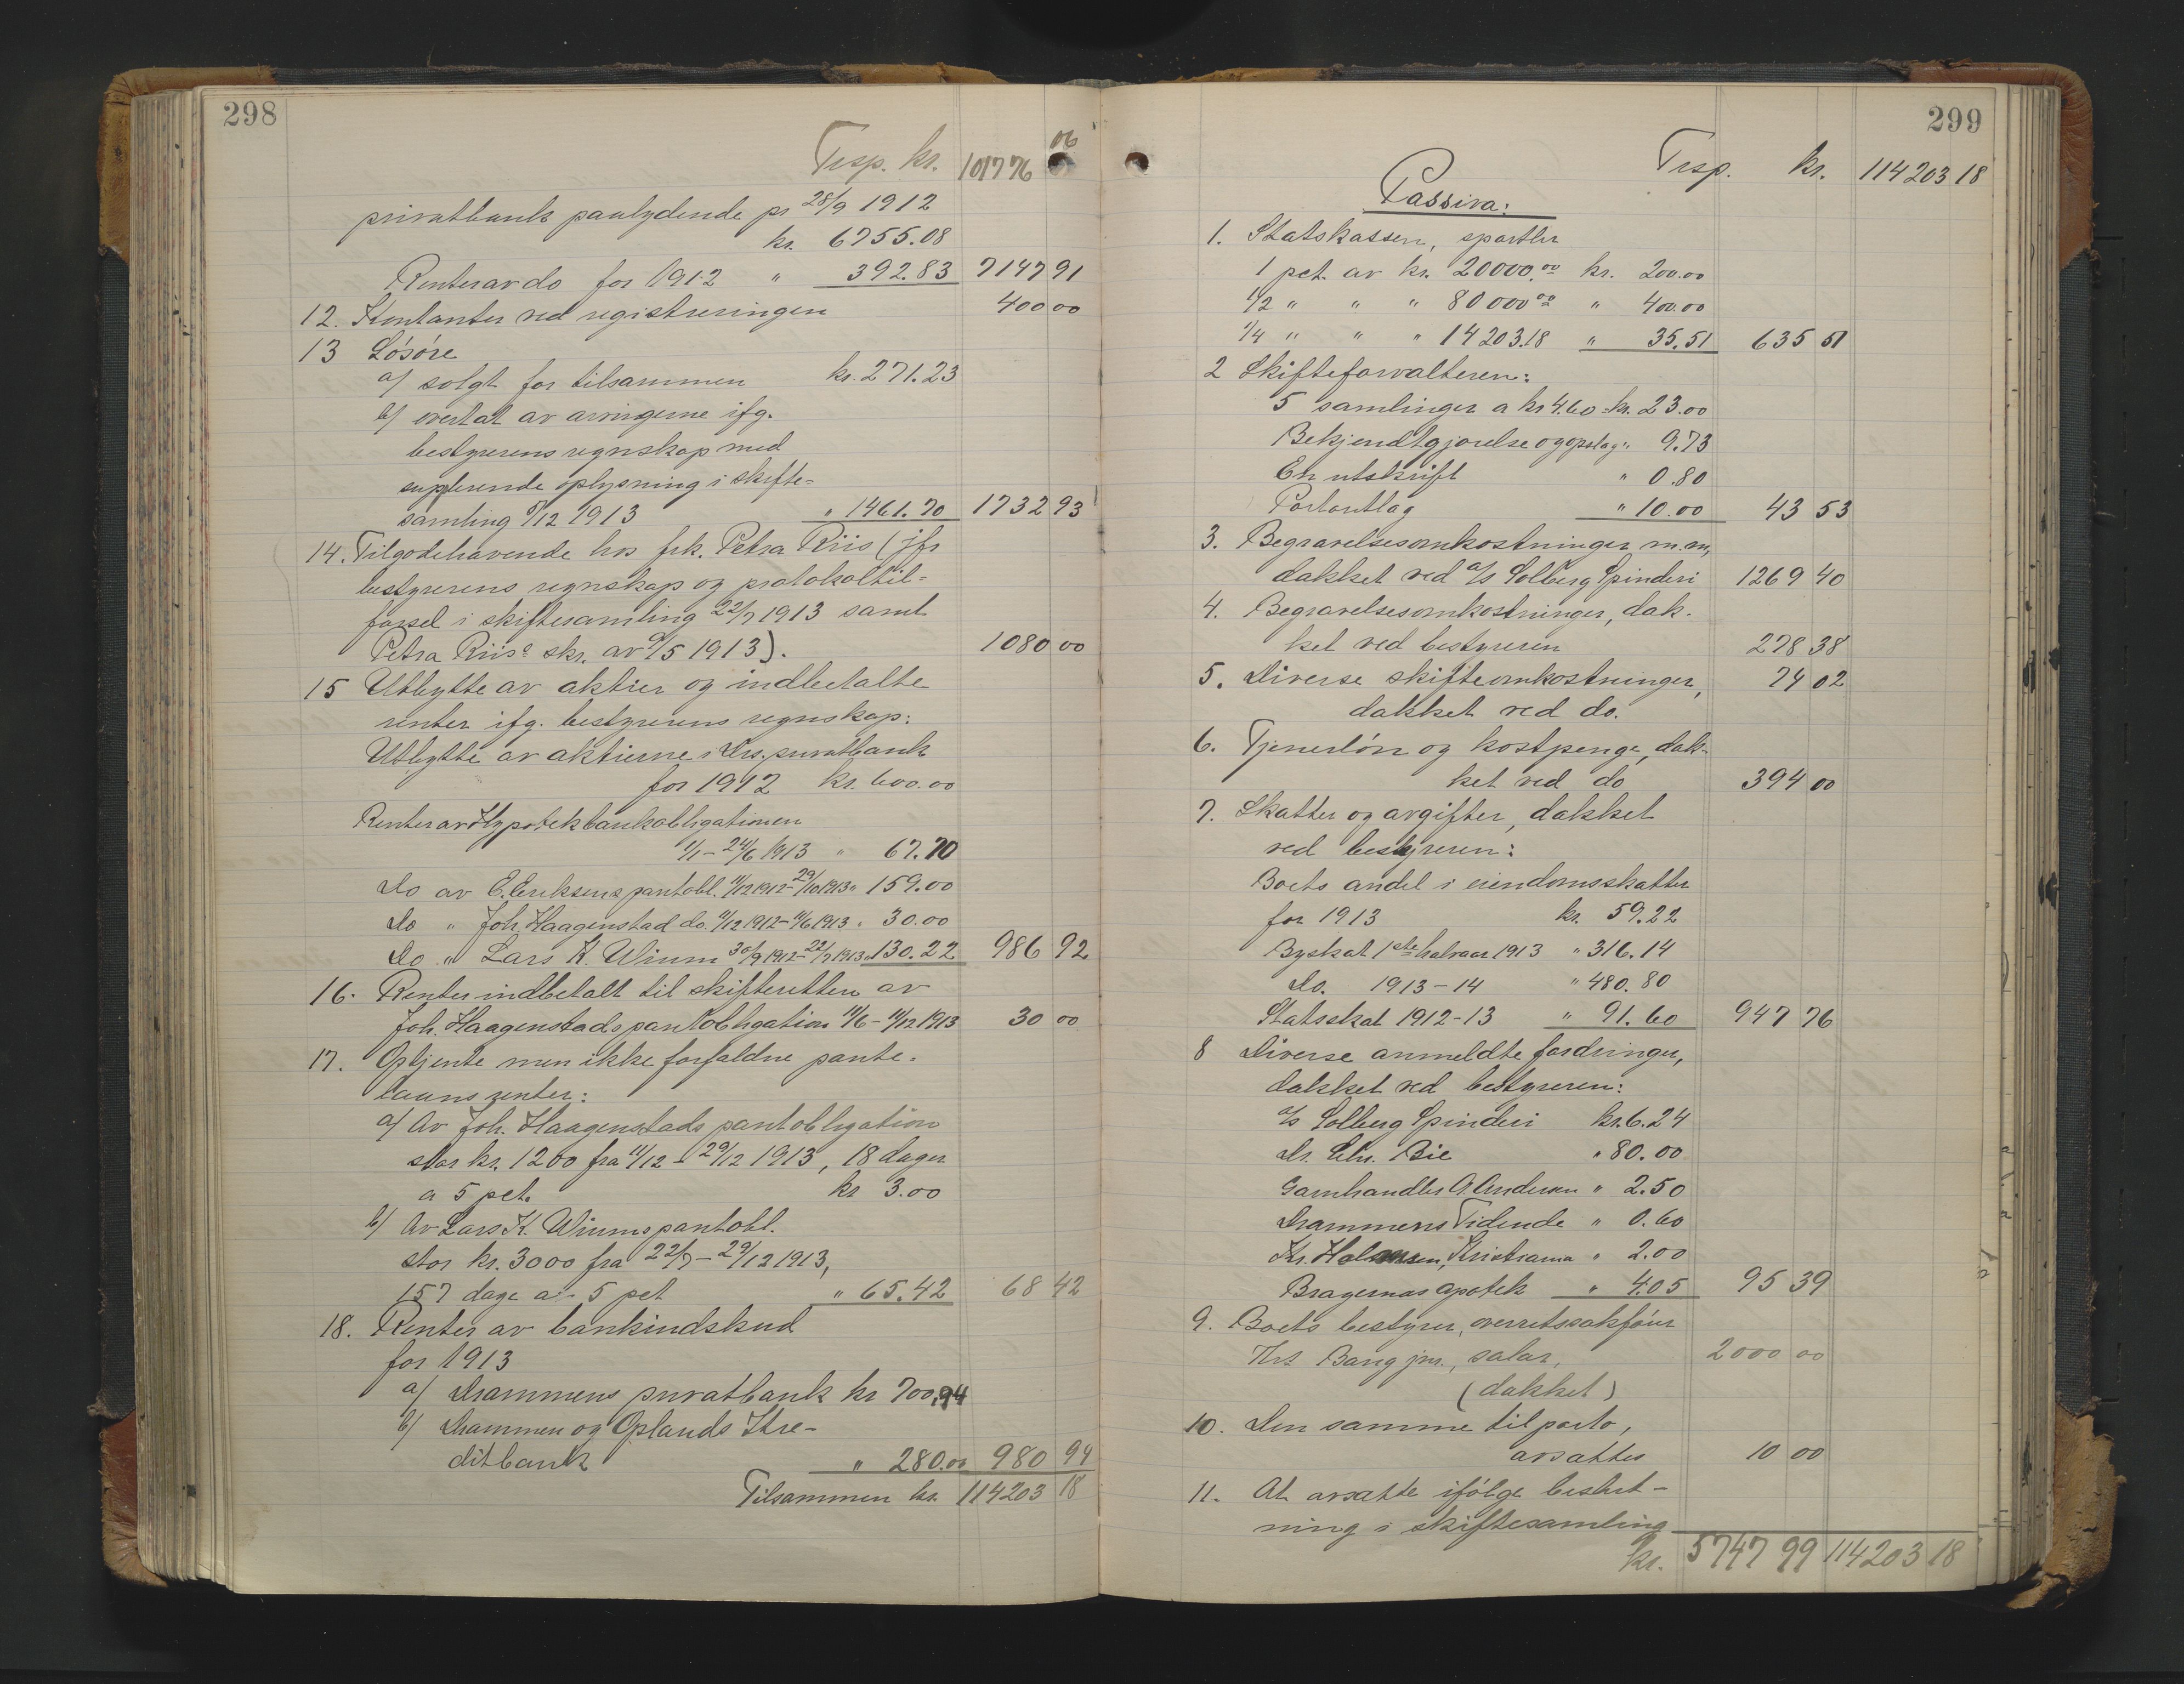 298
Trsp. kr. 101776 06
privatbank paalydende pr 28/9 1912
kr. 6755.08
Renter av do for 1912 " 392.83 7147 91
12. Kontanter ved registreringen 400 00
13 Løsøre
a/ solgt for tilsammen kr. 271.23
b/ overtat av arvingerne ifg.
bestyrerens regnskap med
supplerende oplysning i skifte-
samling /12 1913 " 1461.70 1732 93
14. Tilgodehavende hos frk. Petra Riis (jfr
bestyrerens regnskap og protokoltil-
førsel i skiftesamling 22/7 1913 samt
Petra Riis's skr. av /5 1913). 1080 00
15 Utbytte av aktier og indbetalte
renter ifg. bestyrerens regnskap:
Utbytte av aktierne i Drs. privatbank
for 1912 kr. 600.00
Renter av Hypotekbankobligationen
1/1 - 24/6 1913 " 67.70
Do av E. Eriksens pantobl. 11/12 1912 - 29/10 1913 " 159.00
Do " Joh. Haagenstad do. 11/12 1912 - 11/6 1913 " 30.00
Do " Lars K. Wium 30/9 1912 - 22/7 1913 " 130.22 986 92
16. Renter indbetalt til skifteretten av
Joh. Haagenstads pantobligation 11/6 - 11/12 1913 30 00
17. Optjente men ikke forfaldne pante-
laans renter:
a/ Av Joh. Haagenstads pantobligation
stor kr. 1200 fra 11/12 - 29/12 1913, 18 dager
a 5 pct. kr 3.00
b/ Av Lars K. Wiums pantobl.
stor kr. 3000 fra 22/7 - 29/12 1913,
157 dage a 5 pct " 65.42 68 42
18. Renter av bankindskud
for 1913
a/ Drammens privatbank kr 700.94
b/ Drammen og Oplands Kre-
ditbank " 280.00 980 94
Tilsammen kr. 114203 18
299
Trsp. kr. 114203 18
Passiva:
1. Statskassen, sportler
1 pct. av kr. 20000.00 kr. 200.00
1/2 " " " 80000 00 " 400.00
1/4 " " " 14203.18 " 35.51 635 51
2 Skifteforvalteren:
5 samlinger a kr 4.60 = kr. 23.00
Bekjendtgjørelse og opslag " 9.73
En utskrift " 0.80
Portoutlag " 10.00 43 53
3. Begravelsesomkostninger m.m,
dækket ved a/s Solberg Spinderi 1269 40
4. Begravelsesomkostninger, dæk-
ket ved bestyreren 278 38
5. Diverse skifteomkostninger, 74 02
dækket ved do.
6. Tjenerløn og kostpenge, dæk-
ket ved do 394 00
7. Skatter og avgifter, dækket
ved bestyreren:
Boets andel i eiendomsskatten
for 1913 kr. 59.22
Byskat 1ste halvaar 1913 " 316.14
Do. 1913-14 " 480.80
Statsskat 1912-13 " 91.60 947 76
8 Diverse anmeldte fordringer,
dækket ved bestyreren:
a/s Solberg Spinderi kr. 6.24
Dr. Chr. Bie " 80.00
Garnhandler A. Andersen " 2.50
Drammens Tidende " 0.60
Kr. Halvorsen, Kristiania " 2.00
Bragernæs apotek " 4.05 95 39
9. Boets bestyrer, overretssakfører
Krs Bang jnr., salær, 2000 00
(dækket)
10. Den samme til porto,
avsættes 10 00
11. At avsætte ifølge beslut-
ning i skiftesamling
kr. 5747 99 114203 18